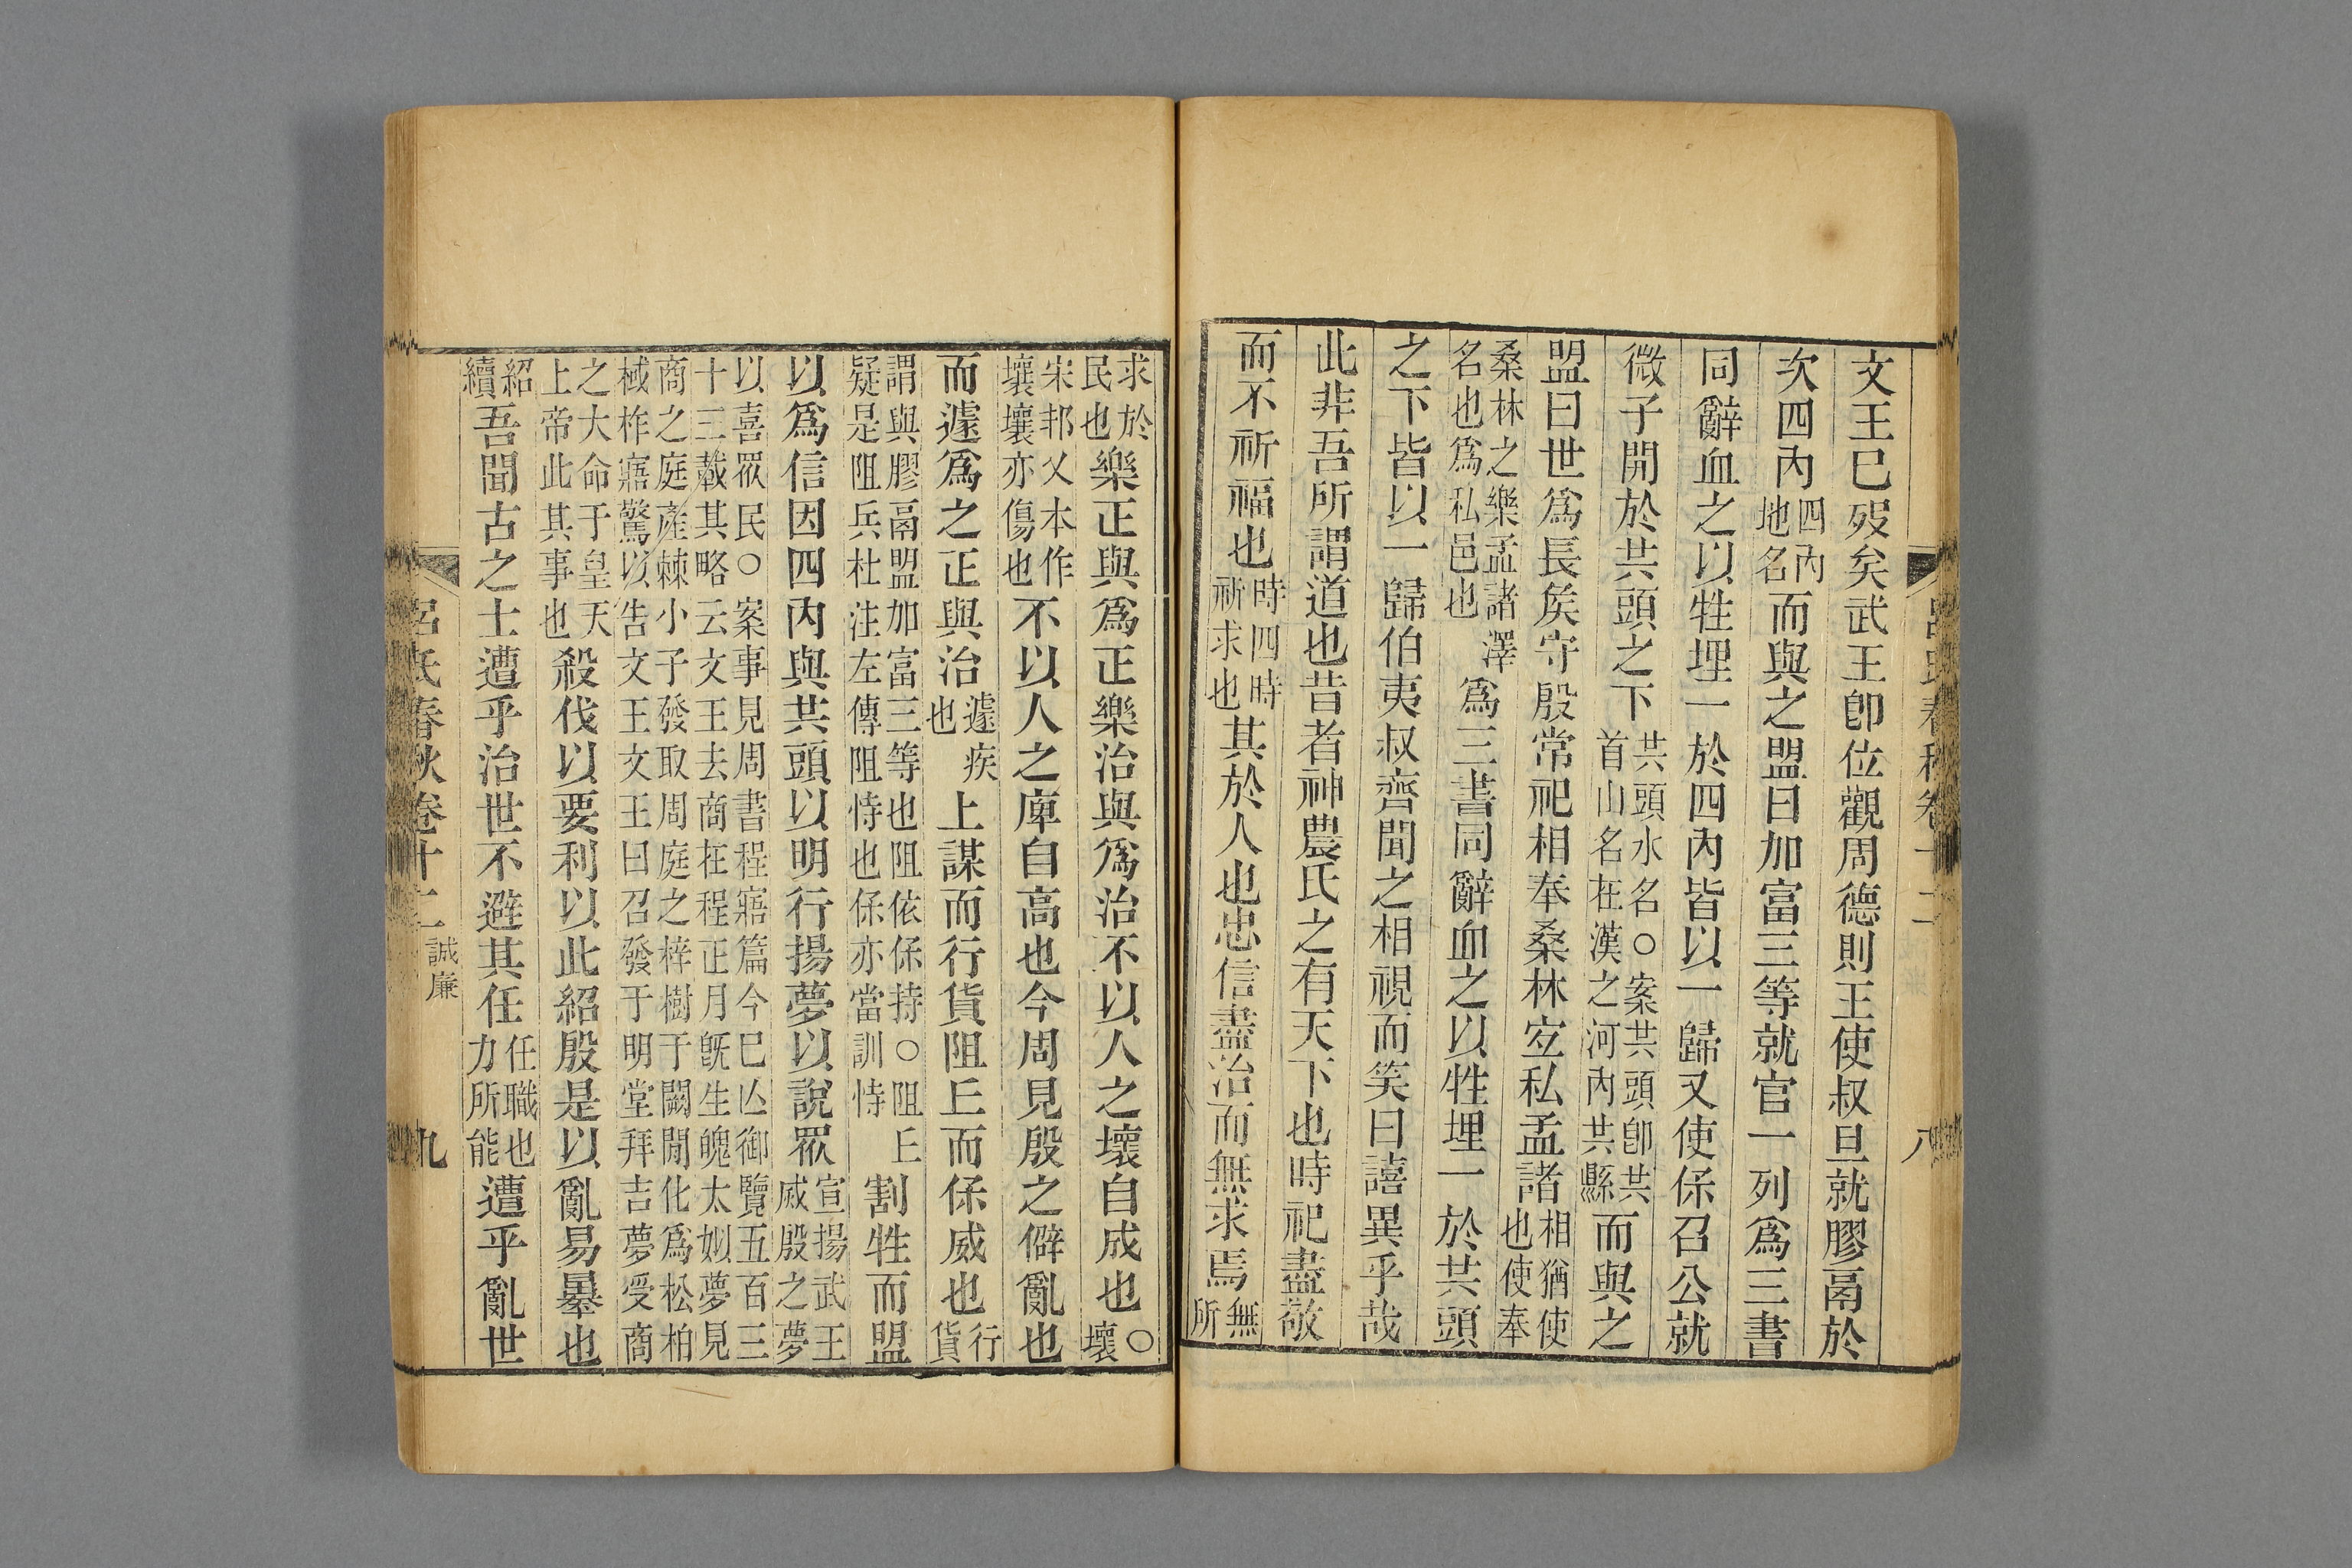 文王已歿矣武王卽位觀周德則王使叔旦就膠鬲於
次四內四內地名而與之盟曰加富三等就官一列爲三書
同辭血之以牲埋一於四內皆以一歸又使保召公就
微子開於共頭之下共頭水名○案共頭卽共首山名在漢之河內共縣而與之
盟曰世爲長矦守殷常祀相奉桑林宐私孟諸相猶使也使奉
桑林之樂孟諸澤名也爲私邑也爲三書同辭血之以牲埋一於共頭
之下皆以一歸伯夷叔齊聞之相視而笑曰譆異乎哉
此非吾所謂道也昔者神農氏之有天下也時祀盡敬
而不祈福也時四時祈求也其於人也忠信盡治而無求焉無所
呂氏春秋卷十二 八
求於民也樂正與爲正樂治與爲治不以人之壞自成也○壞
宋邦乂本作壤壤亦傷也不以人之庳自高也今周見殷之僻亂也
而遽爲之正與治遽疾也上謀而行貨阻丘而保威也行貨
謂與膠鬲盟加富三等也阻依保持○阻丘疑是阻兵杜注左傳阻恃也保亦當訓恃割牲而盟
以爲信因四內與共頭以明行揚夢以說眾宣揚武王威殷之夢
以喜眾民○案事見周書程寤篇今已亾御覽五百三十三載其略云文王去商在程正月旣生魄太姒夢見
商之庭產棘小子發取周庭之梓樹于闕閒化爲松柏棫柞寤驚以告文王文王曰召發于明堂拜吉夢受商
之大命于皇天上帝此其事也殺伐以要利以此紹殷是以亂易暴也
紹續吾聞古之士遭乎治世不避其任任職也力所能遭乎亂世
呂氏春秋卷十二 誠廉 九